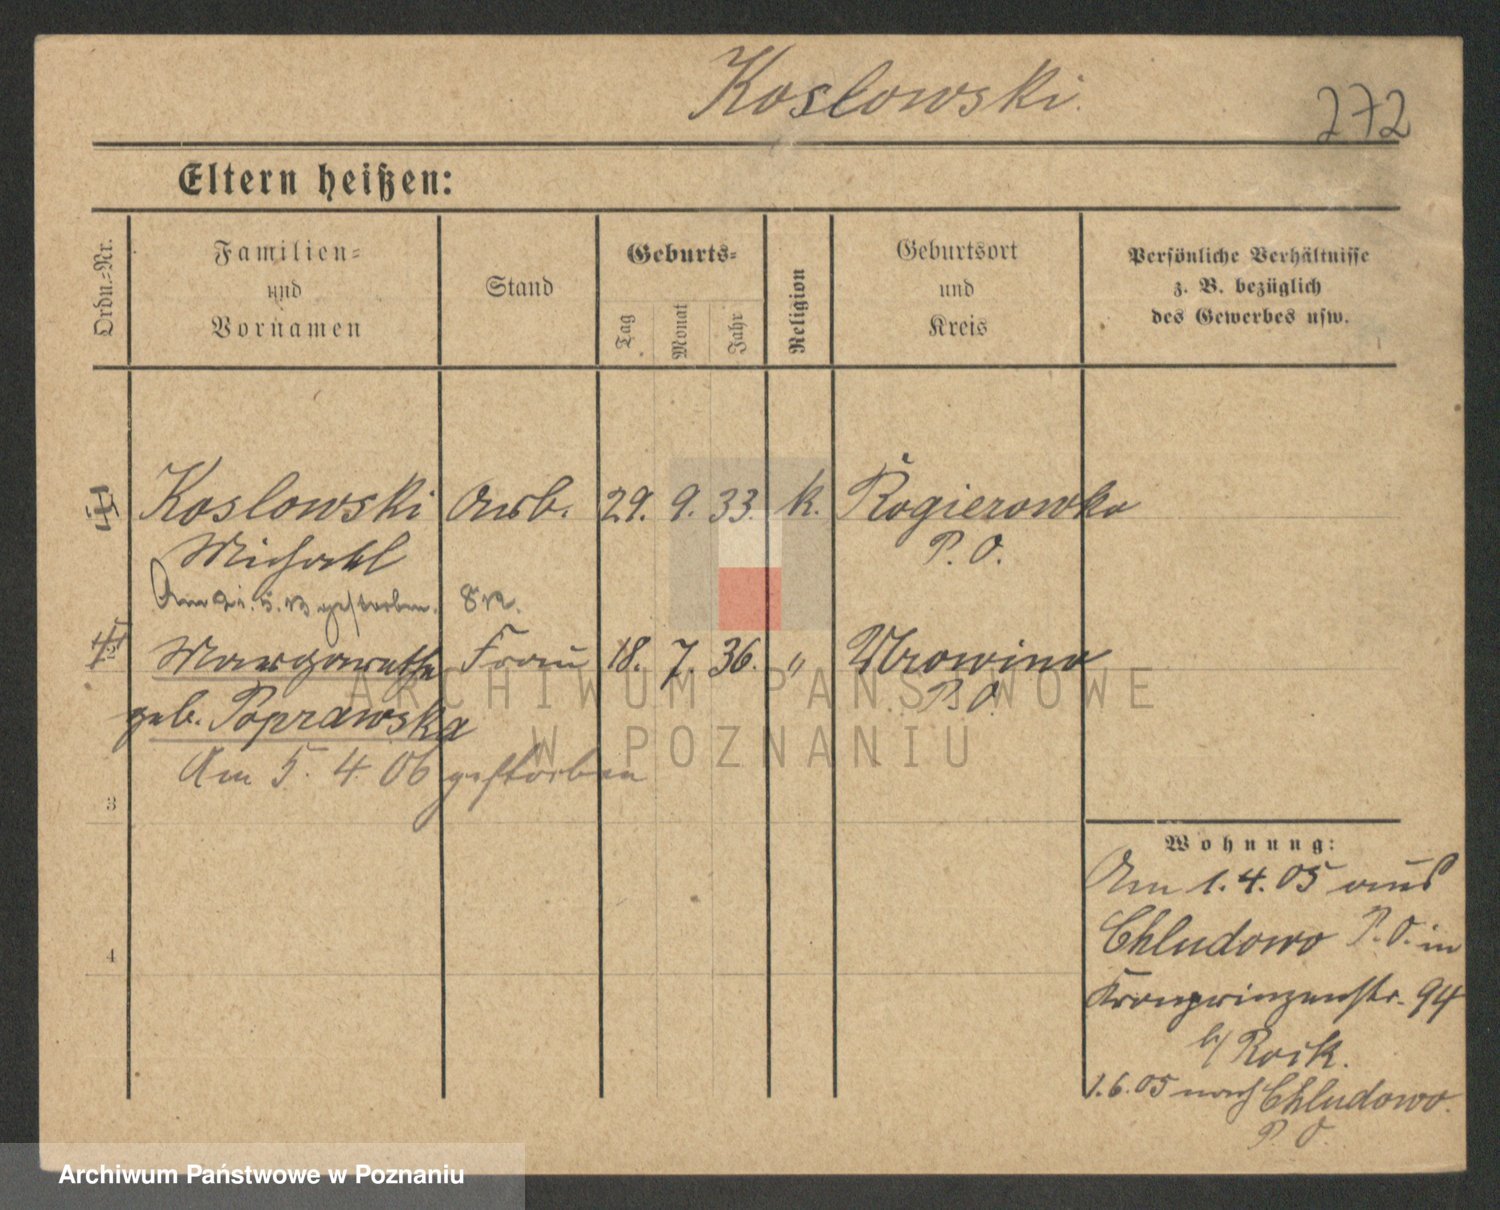 Koslowski.
272
Eltern heißen:
Ordn.-Nr.
Familien-
und
Vornamen
Stand
Geburts-
Tag
Monat
Jahr
Religion
Geburtsort
und
Kreis
Persönliche Verhältnisse
z. B. bezüglich
des Gewerbes usw.
Koslowski Arb. 29. 9. 33. k. Rogierowko
Michael P. O.
Am 21. 5. 13 gestorben.
2 Margarethe Frau 18. 7. 36. " Mrowino
geb. Poprawska P. O.
Am 5. 4. 06 gestorben
3
4
Wohnung:
Am 1. 4. 05 aus
Chludowo P. O. in
Kronprinzenstr. 94
b/ Rosik.
1. 6. 05 nach Chludowo.
P. O.
ARCHIWUM PAŃSTWOWE
W POZNANIU
Archiwum Państwowe w Poznaniu